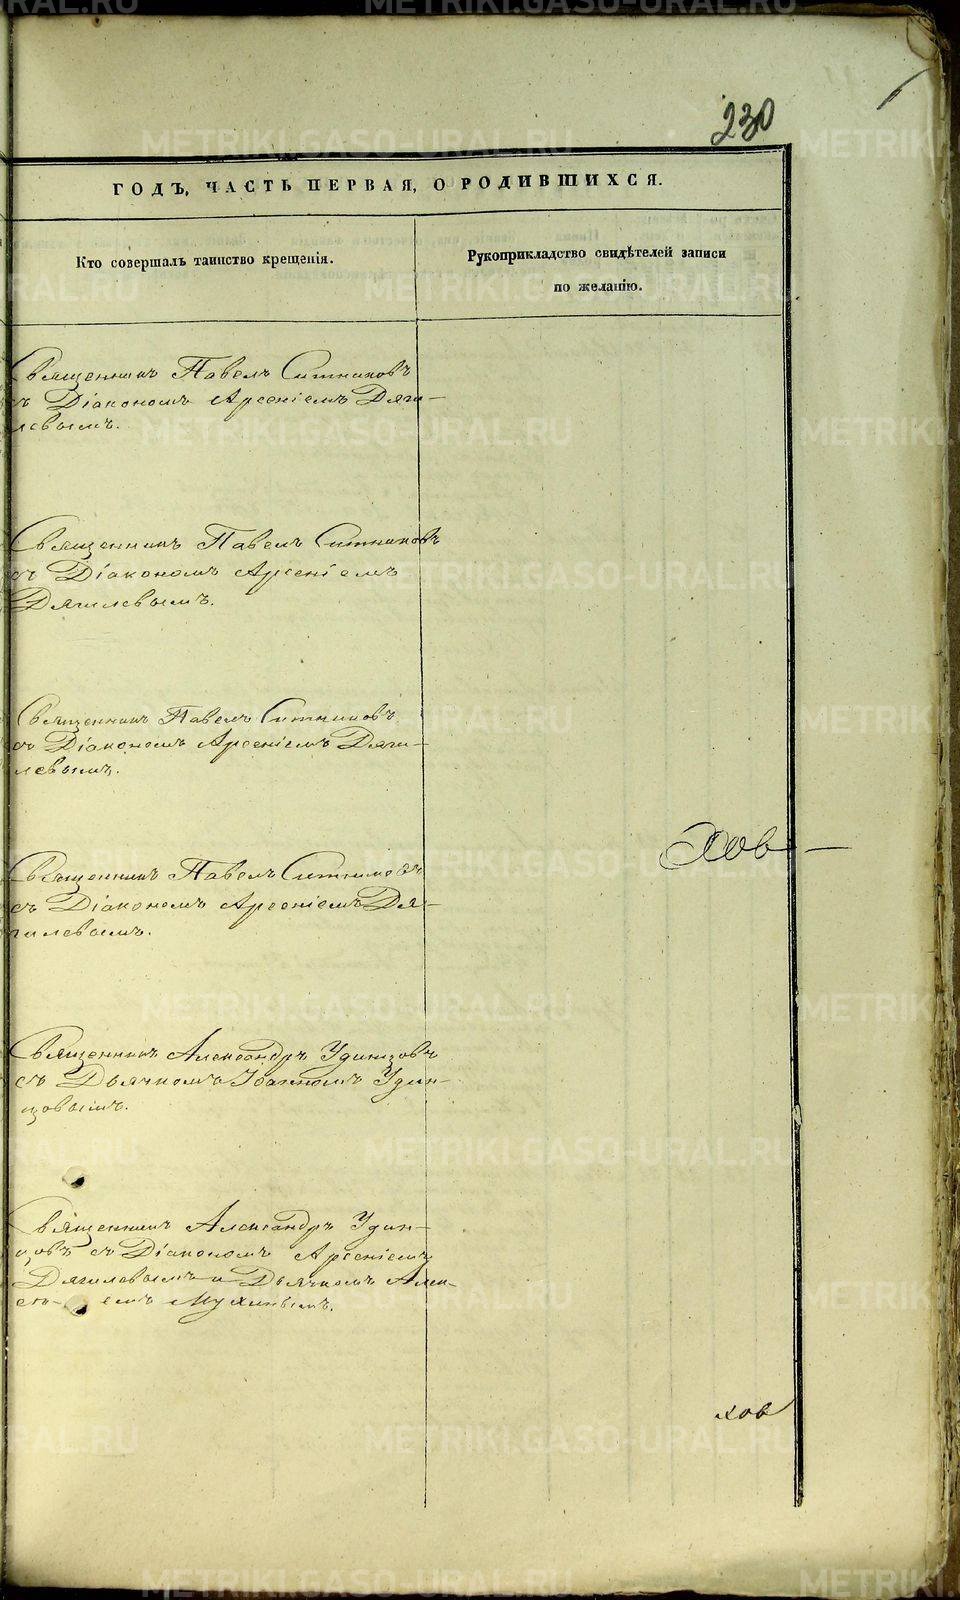 230
ГОДЪ, ЧАСТЬ ПЕРВАЯ, О РОДИВШИХСЯ.
Кто совершалъ таинство крещенія.
Рукоприкладство свидѣтелей записи
по желанію.
Священникъ Павелъ Ситниковъ
съ Діакономъ Арсеніемъ Дяги-
левымъ.
Священникъ Павелъ Ситниковъ
съ Діакономъ Арсеніемъ
Дягилевымъ.
Священникъ Павелъ Ситниковъ
съ Діакономъ Арсеніемъ Дяги-
левымъ.
хов
Священникъ Павелъ Ситниковъ
съ Діакономъ Арсеніемъ Дя-
гилевымъ.
Священникъ Александръ Удинцовъ
съ Дьячкомъ Іоанномъ Удин-
цовымъ.
Священникъ Александръ Удин-
цовъ съ Діакономъ Арсеніемъ
Дягилевымъ и Дьячкомъ Алек-
емъ Мухинымъ.
хов
METRIKI.GASO-URAL.RU